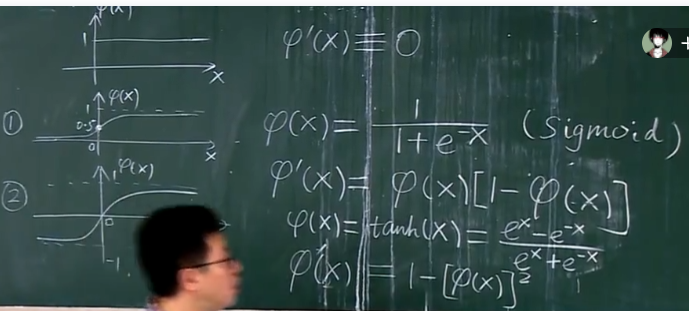 φ(x)
1
x
φ'(x)≡0
① φ(x)
1
0.5
0
x
φ(x)= 1/(1+e^-x) (Sigmoid)
φ'(x)= φ(x)[1-φ(x)]
② φ(x)
1
0
-1
φ(x)=tanh(x)= (e^x-e^-x)/(e^x+e^-x)
φ'(x)=1-[φ(x)]^2